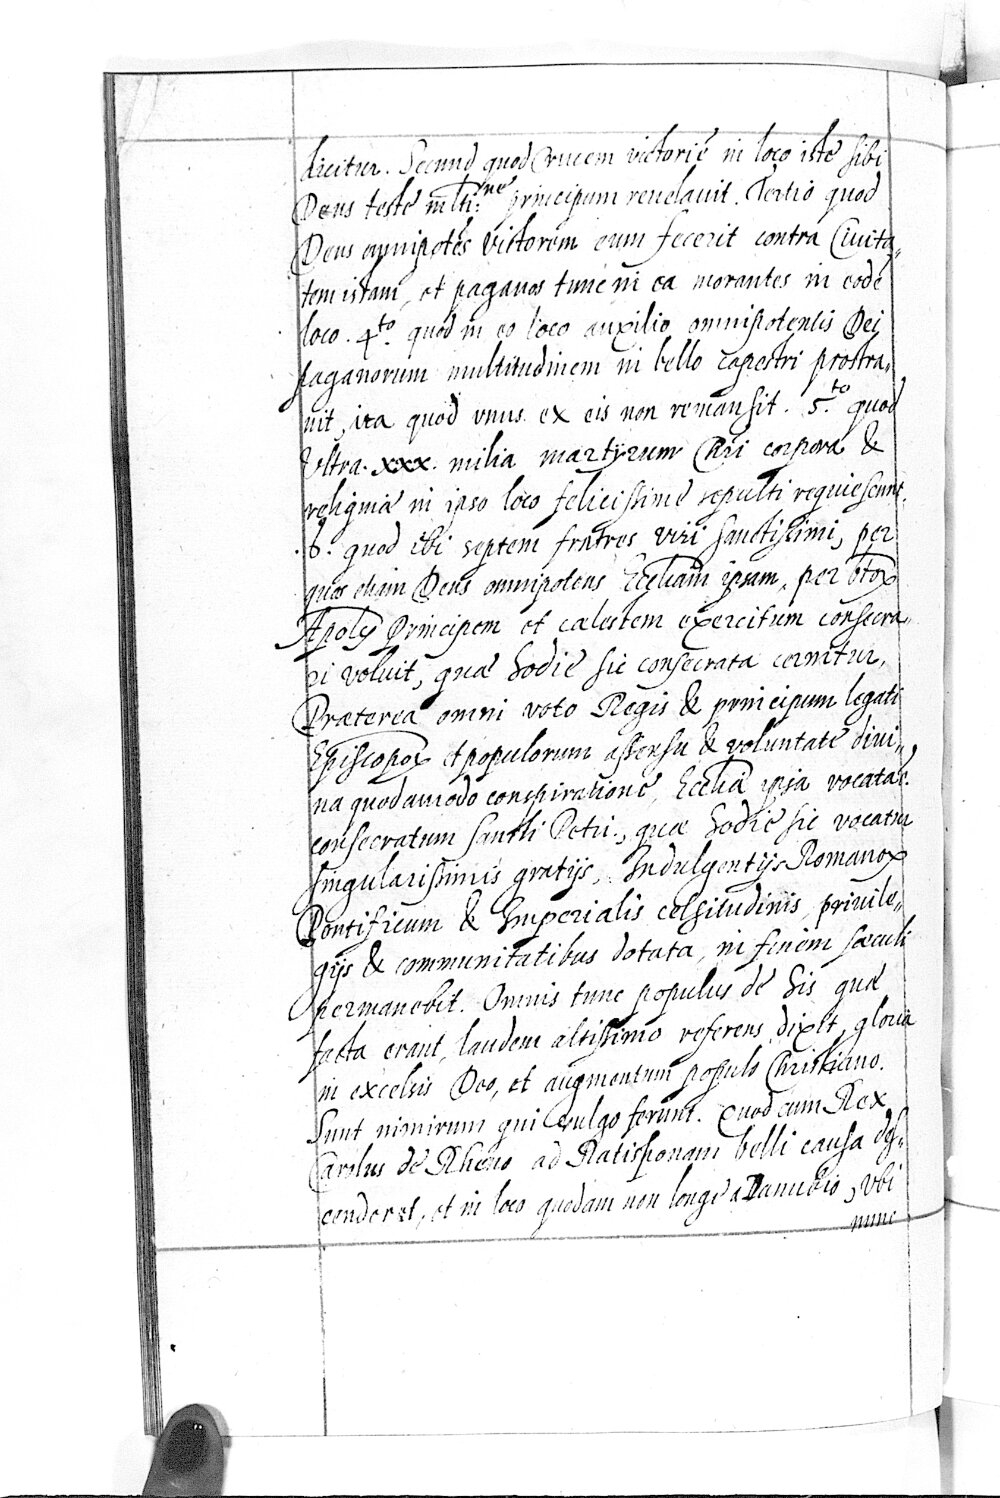 dicitur. Secund quod Crucem victorie in loco iste sibi
Deus teste mlti:ne principum reuelauit. Tertio quod
Deus omnipotēs Victorem eum fecerit contra Ciuita„
tem istam, et paganos tunc in ea morantes in eodē
loco. 4to. quod in eo loco auxilio omnipotentis Dei
paganorum multitudinem in bello capestri prostra„
uit, ita quod vnus ex eis non remansit. 5.to quod
Vltra. xxx. milia martyrum Chri corpora &
religuiæ in ipso loco felicissime sepulti requiescunt.
.6. quod ibi septem fratres viri sanctissimi, per
quos etiam Deus omnipotens Eccliam ipsam, per
Principem et cælestem exercitum consecra„
ri voluit, quæ hodie sic consecrata cernitur,
Præterea omni voto Regis & principum legati
Episcopoꝝ et populorum assensu & voluntate diui„
na quodamodo conspiratione, Ecclia ipsa vocatae
consecratum Sancti Petri, quæ hodie sic vocatur
singularissimis gratijs, Indulgentijs Romanoꝝ
Pontificum & Imperialis celsitudinis, priuile„
gijs & communitatibus dotata, in finem sæculi
permanebit. Omnis tunc populus de his quæ
facta erant, laudem altissimo referens dixit, gloria
in excelsis Deo, et augmentum populo Christiano.
Sunt nimirum qui vulgo ferunt. Quod cum Rex
Carolus de Rheno ad Ratisponam belli causa des„
cenderet, et in loco quodam non longe a Danubio, vbi
nunc